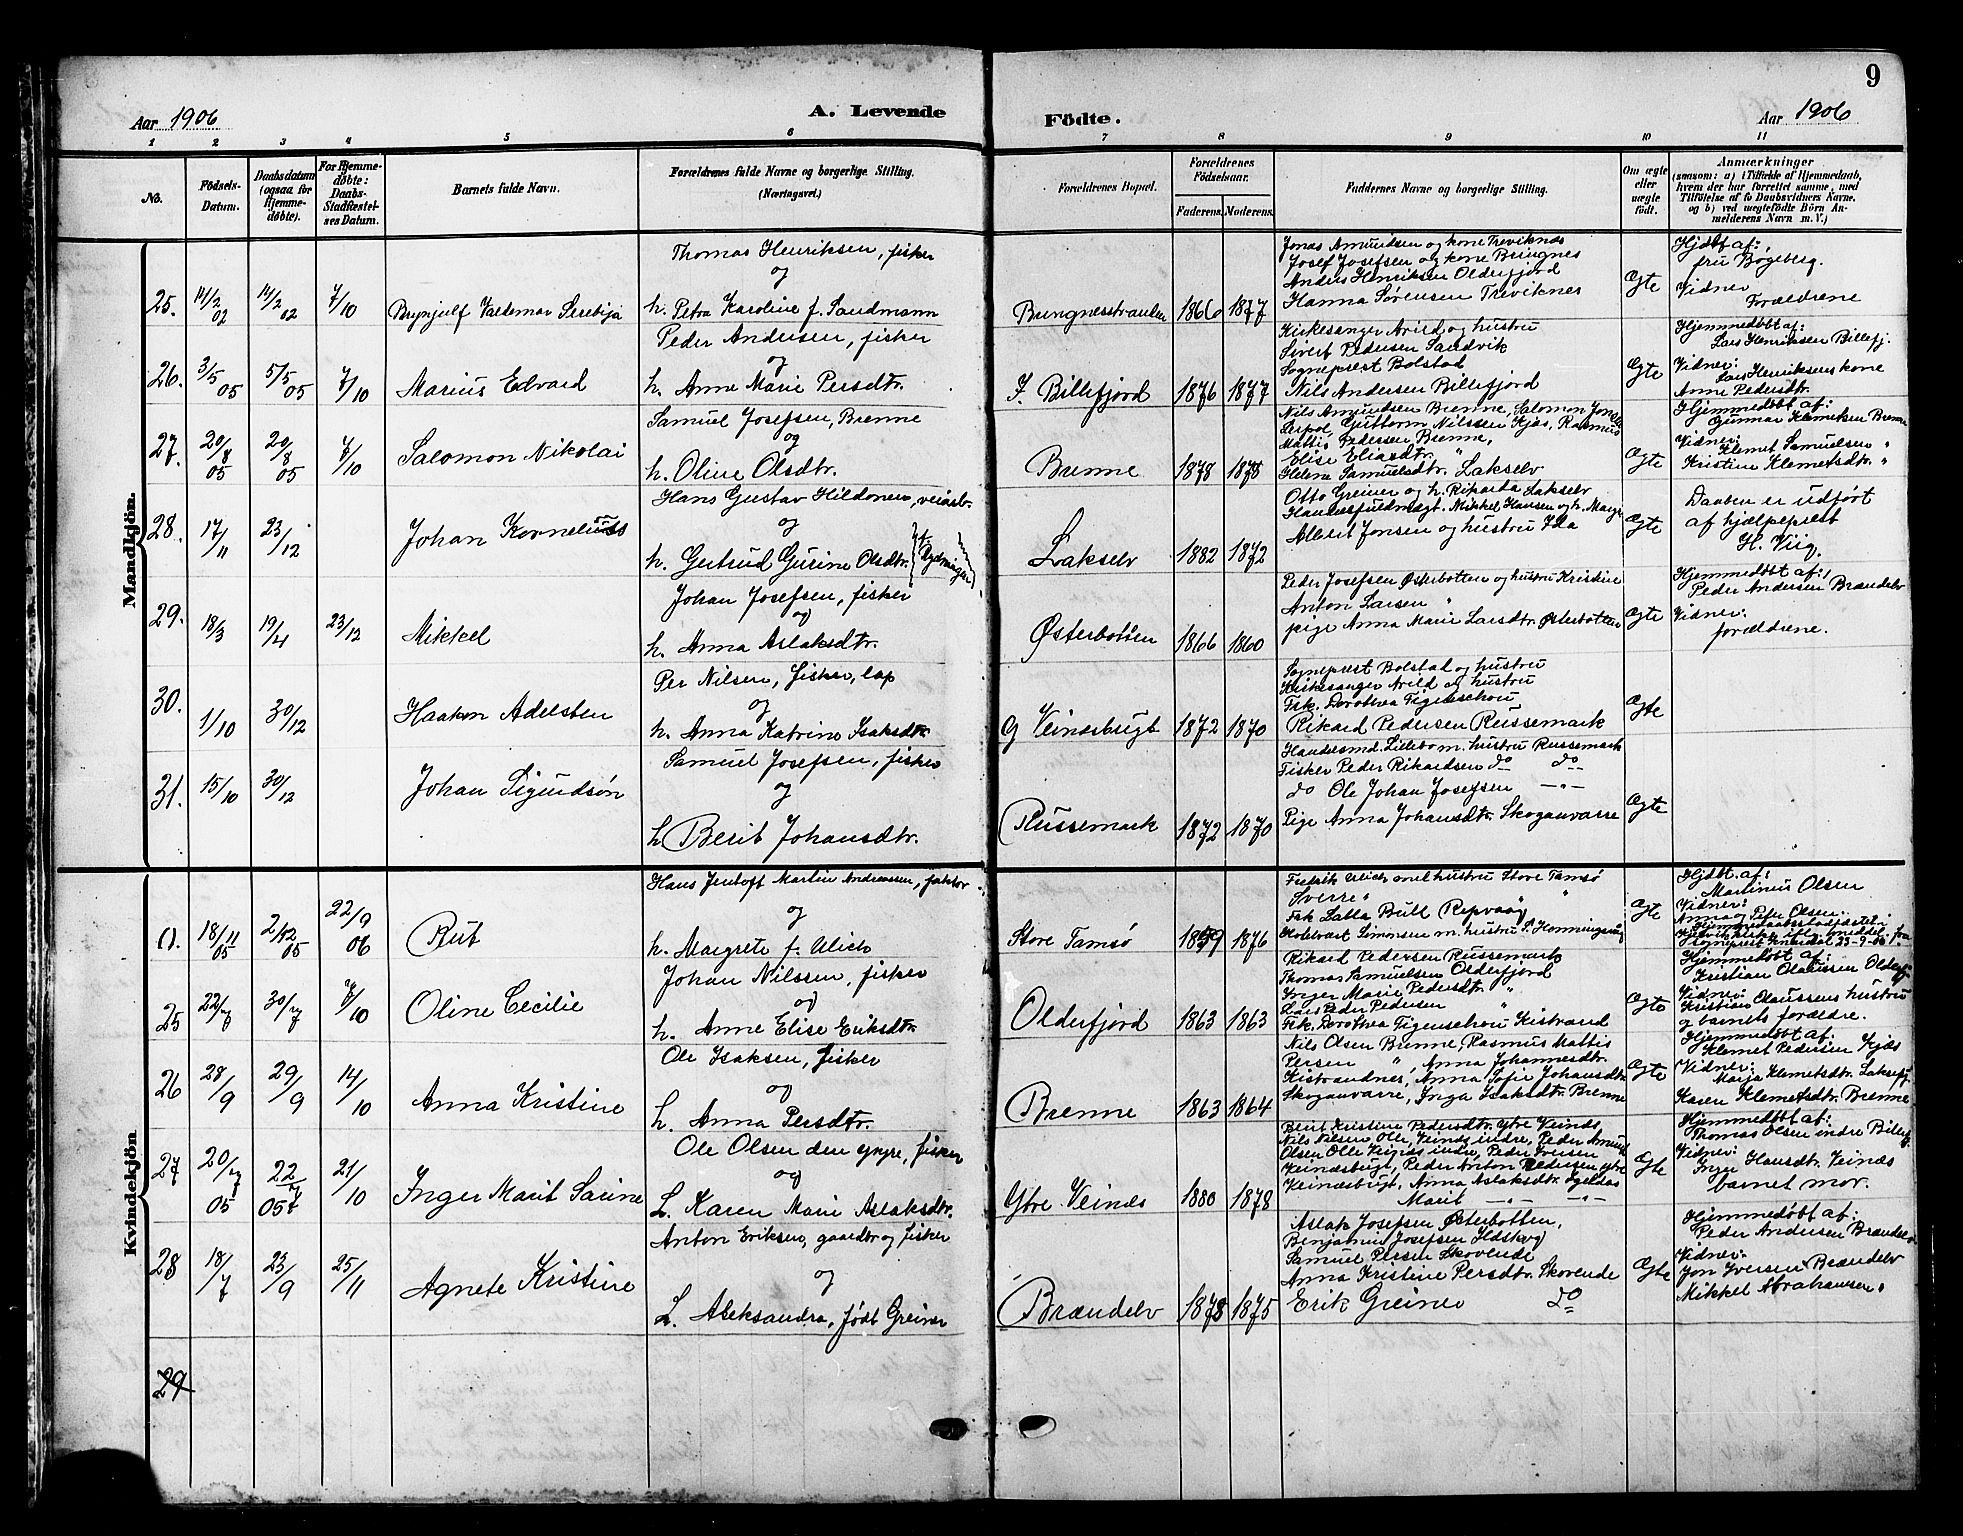 9
Aar 1906 A. Levende Födte. Aar 1906
1 2 3 4 5 6 7 8 9 10 11
No.
Födsels-Datum.
Daabsdatum (ogsaa for Hjemme-döbte).
For Hjemme-döbte: Daabs-Stadfæstel-ses Datum.
Barnets fulde Navn.
Forældrenes fulde Navne og borgerlige Stilling. (Næringsvei.)
Forældrenes Bopæl.
Forældrenes Födselsaar.
Faderens. Moderens.
Faddernes Navne og borgerlige Stilling.
Om ægte eller uægte födt.
Anmærkninger
(saasom: a) i Tilfælde af Hjemmedaab, hvem der har forrettet samme, med Tilföielse af to Daabsvidners Navne, og b) ved uægtefödte Börn An-melderens Navn m. V.)
Mandkjön.
25. 14/2 02 14/2 02 7/10 Brynjulf Valdemar
Thomas Henriksen, fisker
og
h. Petra Karoline f. Sandmann
1866 1877
Jonas Amundsen og kone Treviknæs
Josef Josefsen og kone Bringnes
Anders Henriksen Olderfjord
Hanna Sørensen Treviknes
Ægte
Hjdbt af:
fru Bøgeberg.
Vidner
Forældrene
26. 3/5 05 5/5 05 7/10 Marius Edvard
Peder Andersen, fisker
og
h. Anne Marie Persdtr.
I. Billefjord 1876 1877
Kirkesanger Arild og hustru
Sivert Pedersen Sandvik
Sogneprest Bolstad
Nils Andersen Billefjord
Ægte
Hjemmedøbt af:
Lars Henriksen Billefj.
Vidner:
Lars Henriksens kone
Anne Pedersdtr.
27. 20/8 05 20/8 05 7/10 Salomon Nikolai
Samuel Josefsen, Brenne
og
h. Oline Olsdtr.
Brenne 1878 1875
Nils Amundsen Brenne, Salomon
Guttorm Nilssen Kjæs, Rasmus
Mattis Pedersen Brenne,
Elise Eliasdtr. "
Helene Samuelsdtr. Lakselv
Ægte
Hjemmedøbt af:
Gunnar Klemetsen Brenne
Vidner:
Klemet Samuelsen "
Kristine Klemetsdtr. "
28. 17/11 23/12 Johan Kornelius
Hans Gustav Hildonen, veiarb.
og
h. Gertrud Gurine Olsdtr.
Lakselv 1882 1872
Otto Greiner og h. Rikarda Lakselv
Handelsfuldmægt. Mikkel Hansen og h.
Albert Jonsen og hustru Ida
Ægte
Daaben er udført
af hjælpeprest
H. Viig.
29. 18/3 19/4 23/12 Mikkel
Johan Josefsen, fisker
og
h. Anna Aslaksdtr.
Østerbotten 1866 1860
Peder Josefsen Østerbotten og hustru Kristine
Anton Larsen "
pige Anna Marie Larsdtr. Østerbotten
Ægte
Hjemmedøbt af:
Peder Andersen Brændelv
Vidner:
forældrene.
30. 1/10 30/12 Haakon Adelsten
Per Nilsen, fisker, lap
og
h. Anna Katrine Isaksdtr.
Veinesbugt 1872 1870
Sogneprest Bolstad og hustru
Kirkesanger Arild og hustru
Frk. Dorothea Figenschou
Rikard Pedersen Russemark
Ægte
31. 15/10 30/12 Johan Sigurdsøn
Samuel Josefsen, fisker
og
h. Berit Johansdtr.
Russemark 1872 1870
Handelsmd. Lillebo m. hustru Russemark
Fisker Peder Rikardsen do do
do Ole Johan Josefsen — " —
Pige Anna Johansdtr. Skoganvarre
Ægte
Kvindekjön
(). 18/11 05 2/12 05 22/9 06 Rut
Hans Jentoft Martin Andreassen, faktor
og
h. Margrete f. Ulich
Store Tamsø 1859 1876
Fredrik Ulich med hustru Store Tamsø
Sverre " "
Frk Labba Bull Repvaag
Simonsen m. hustru Honningsvaag
Ægte
Hjdbt. af:
Martinus Olsen
Vidner:
Anna og Peter Olsen.
25 22/7 30/7 7/10 Oline Cecilie
Johan Nilssen, fisker
og
h. Anne Elise Eriksdtr.
Olderfjord 1863 1863
Rikard Pedersen Russemark
Thomas Samuelsen Olderfjord
Inger Marie Pedersdtr. "
Lars Peder Pedersen "
Frk. Dorothea Figenschou Kistrand
Ægte
Hjemmedøbt af:
Kristian Olaussen Olderfj.
Vidner:
Kristian Olaussens hustru
og barnets forældre.
26 28/9 29/9 14/10 Anna Kristine
Ole Isaksen, fisker
og
h. Anna Persdtr.
Brenne 1863 1864
Nils Olsen Brenne, Rasmus Mattis
Persen ", Anna Johannesdtr.
Kistrandnes, Anna Sofie Johansdtr.
Skoganvarre, Inga Isaksdtr. Brenne
Ægte
Hjemmedøbt af:
Klemet Pedersen Kjæs
Vidner:
Marja Klemetsdtr. Laksefj.
Karen Klemetsdtr. Brenne
27 20/7 05 22/7 05 21/10 Inger Marit Sarine
Ole Olsen den yngre, fisker
og
h. Karen Marie Aslaksdtr.
Ytre Veines 1880 1878
Berit Kristine Pedersdtr. Ytre Veines,
Nils Nilsen Olle, Veines indre, Peder Amund
Olsen Olle Veines indre, Peder Iversen
Veinesbugt, Peder Anton Pedersen ytre
Veinesbugt, Anna Aslaksdtr.
Marit — " — — " —
Ægte
Hjemmedøbt af:
Thomas Olsen indre Billefj.
Vidner:
Inger Hansdtr. Veines
barnet mor.
28 18/7 23/9 25/11 Agnete Kristine
Anton Eriksen, gaardbr og fisker
og
h. Aleksandra, født Greiner
Brændelv 1878 1875
Aslak Josefsen Østerbotten,
Benjamin Josefsen Ildskog
Samuel Persen Skovende
Anna Kristine Persdtr. Skovende
Erik Greiner do
Ægte
Hjemmedøbt af:
Peder Andersen Brændelv
Vidner:
Jon Iversen Brændelv
Mikkel Abrahamsen "
29